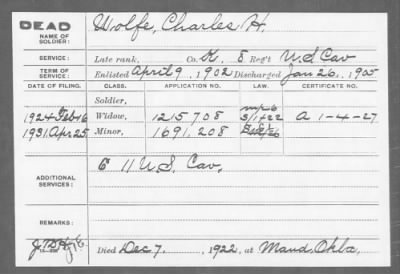 DEAD
NAME OF SOLDIER: Wolfe, Charles H.
SERVICE: Late rank, Co. K. 8 Reg't U.S Cav
TERM OF SERVICE: Enlisted April 9, 1902 Discharged Jan 26, 1905
DATE OF FILING. CLASS. APPLICATION NO. LAW. CERTIFICATE NO.
Soldier,
1924 Feb 16 Widow, 1215708 A 1-4-27
1931 Apr 25 Minor, 1691,208
ADDITIONAL SERVICES: 6 11 U.S. Cav.
REMARKS:
Died Dec 7, 1922, at Maud, Okla,